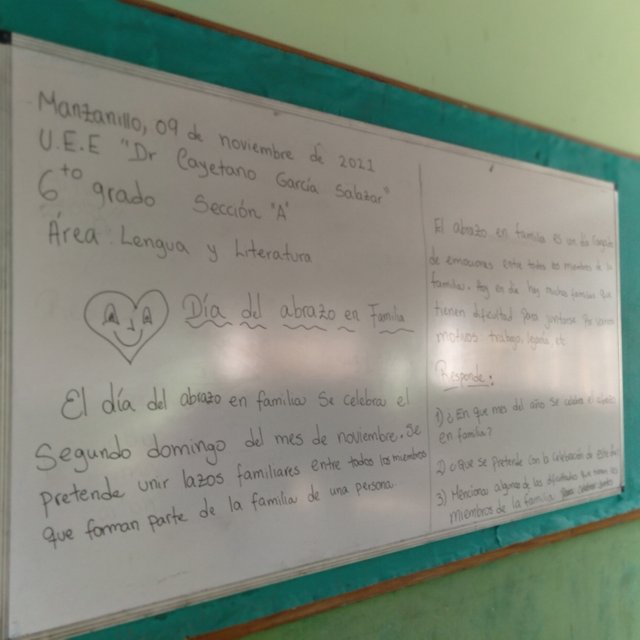 Manzanillo, 09 de noviembre de 2021
U.E.E "Dr Cayetano García Salazar"
6to grado Sección "A"
Área: Lengua y Literatura
Día del abrazo en Familia
El día del abrazo en familia se celebra el
segundo domingo del mes de noviembre. Se
pretende unir lazos familiares entre todos los miembros
que forman parte de la familia de una persona.
El abrazo en familia es un día
de emociones entre todos los miembros de la
familia. Hoy en día hay muchas familias que
tienen dificultad para juntarse. Por varios
motivos: trabajo, lejanía etc
Responde:
1) ¿En que mes del año se celebra el
en familia?
2) ¿Que se pretende con la celebración de este
3) Menciona algunas de las dificultades que
miembros de la familia para